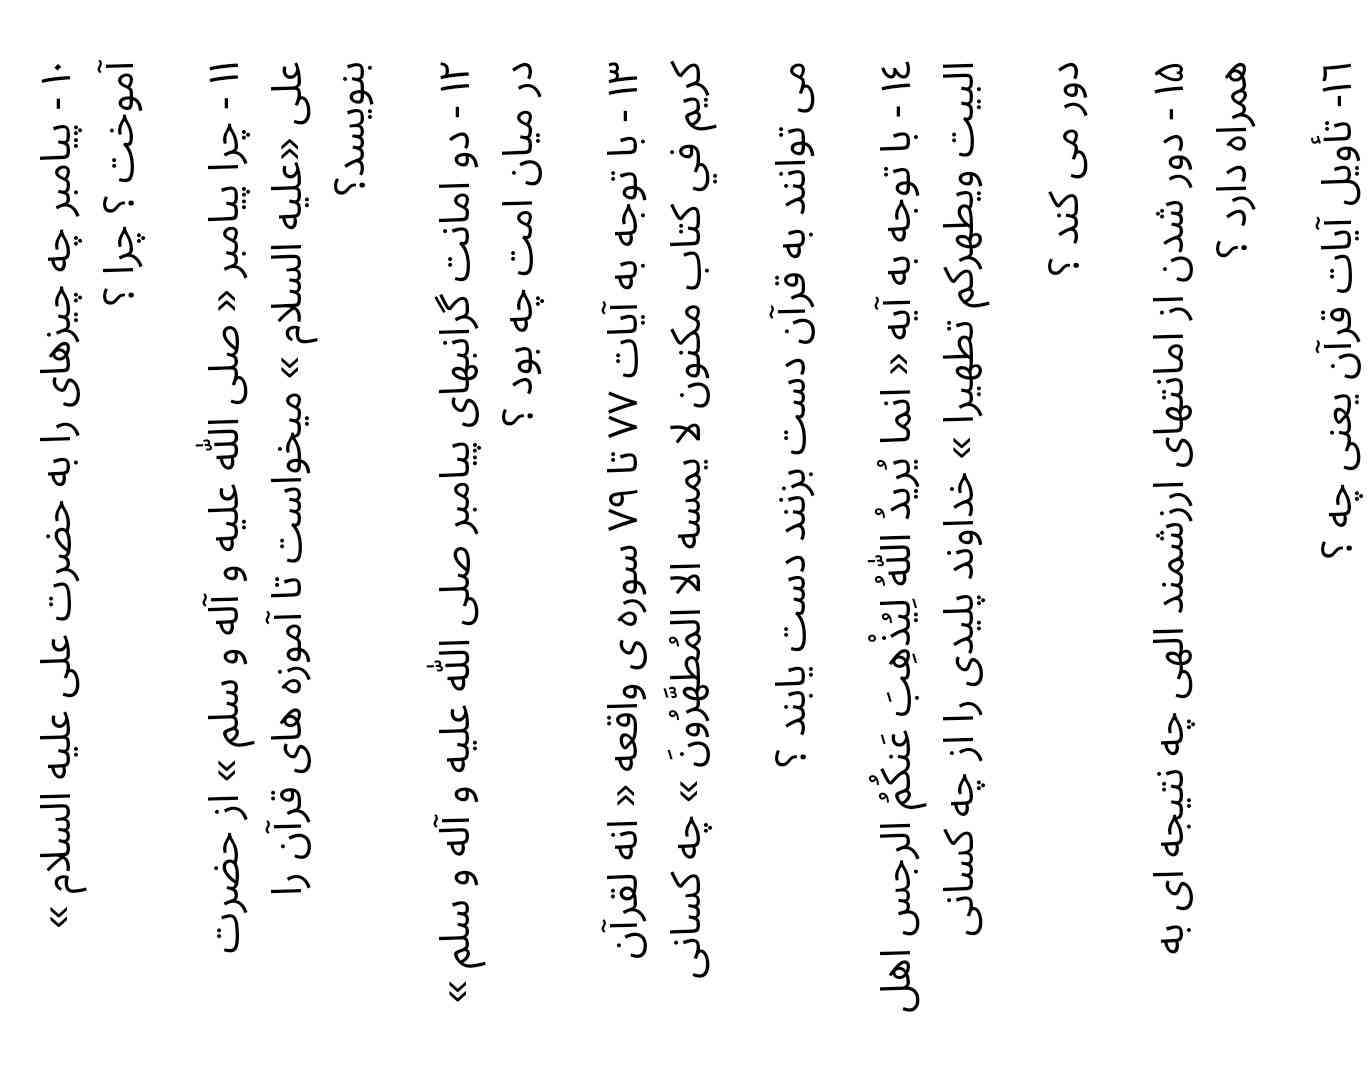 ۱۰ - پیامبر چه چیزهای را به حضرت علی علیه السلام »
آموخت ؟ چرا ؟
۱۱ - چرا پیامبر « صلی اللّه علیه و آله و سلم » از حضرت
علی «علیه السلام » میخواست تا آموزه های قرآن را
بنویسد؟
۱۲ - دو امانت گرانبهای پیامبر صلی اللّه علیه و آله و سلم »
در میان امت چه بود ؟
۱۳ - با توجه به آیات ۷۷ تا ۷۹ سوره ی واقعه « انه لقرآن
کریم في کتاب مکنون لا یمسه الا المُطهَّرُونَ » چه کسانی
می توانند به قرآن دست بزنند دست یابند ؟
۱٤ - با توجه به آیه « انما یُریدُ اللّهُ لَیُذْهِبَ عَنکُمُ الرجس اهل
البیت ویطهرکم تطهیرا » خداوند پلیدی را از چه کسانی
دور می کند ؟
۱۵ - دور شدن از امانتهای ارزشمند الهی چه نتیجه ای به
همراه دارد ؟
۱٦- تأویل آیات قرآن یعنی چه ؟